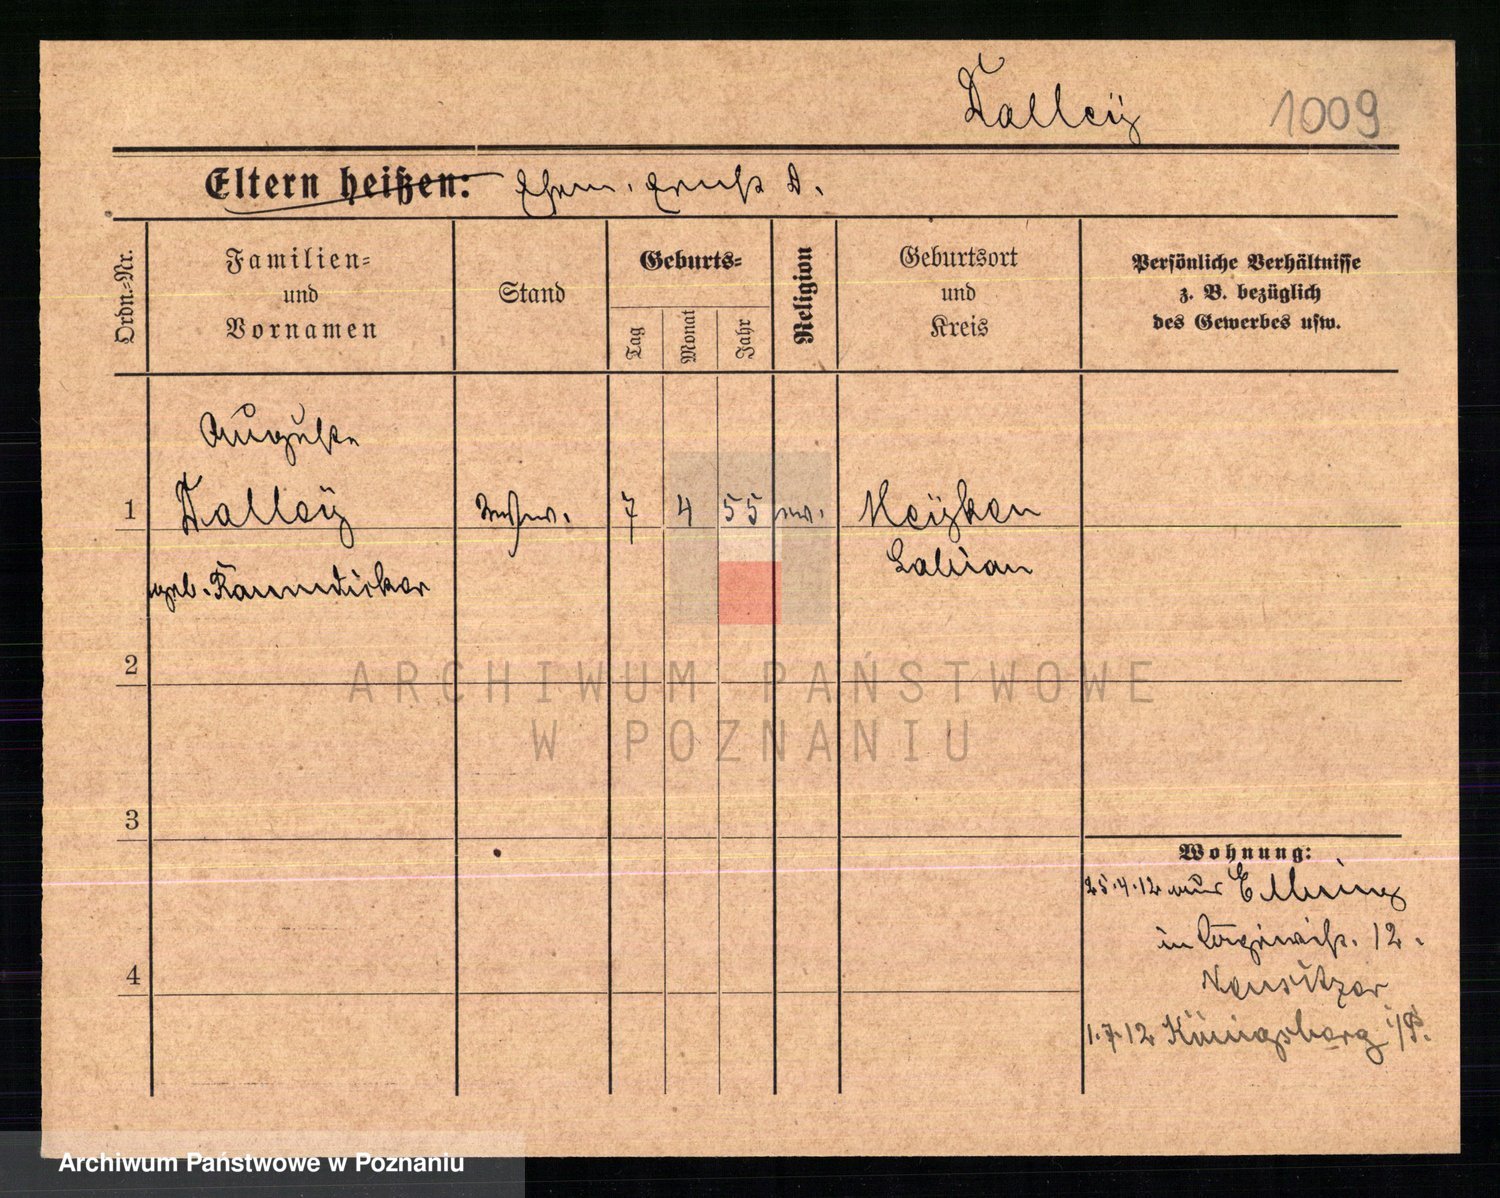 Dalleÿ 1009
Eltern heißen: Ehem. Ernst D.
Ordn.-Nr.
Familien-
und
Vornamen
Stand
Geburts-
Tag
Monat
Jahr
Religion
Geburtsort
und
Kreis
Persönliche Verhältnisse
z. B. bezüglich
des Gewerbes usw.
Auguste
1 Dalleÿ 7 4 55 ev. Heÿken
Labiau
geb.
2
3
4
Wohnung:
25.4.12 aus Elbing
in 12.
Neusitzer
1.7.12 Königsberg i/P.
ARCHIWUM PAŃSTWOWE
W POZNANIU
Archiwum Państwowe w Poznaniu